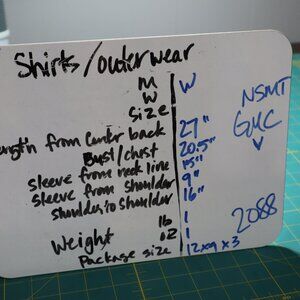 Shirts/outerwear
M W
W
Size
NSMT
ength from Center back 27"
GMC
Bust/chest 20.5"
V
sleeve from neck line 15"
sleeve from shoulder 9"
shoulder to shoulder 16"
lb 1
2088
Weight oz 1
Package size 12x9x3